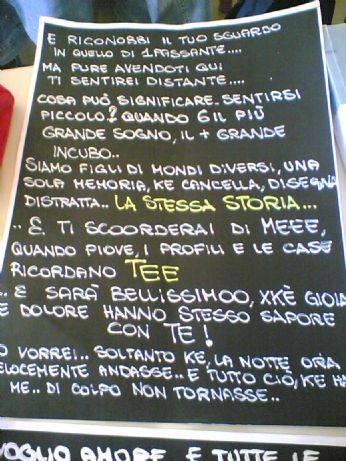 E RICONOBBI IL TUO SGUARDO
IN QUELLO DI 1 PASSANTE....
MA PURE AVENDOTI QUI
TI SENTIREI DISTANTE....
COSA PUÒ SIGNIFICARE SENTIRSI
PICCOLO? QUANDO 6 IL PIÙ
GRANDE SOGNO, IL + GRANDE
INCUBO..
SIAMO FIGLI DI MONDI DIVERSI, UNA
SOLA MEMORIA, KE CANCELLA, DISEGNA
DISTRATTA.. LA STESSA STORIA...
.. E TI SCOORDERAI DI MEEE,
QUANDO PIOVE, I PROFILI E LE CASE
RICORDANO TEE
.. E SARÀ BELLISSIMOO, XKÈ GIOIA
E DOLORE HANNO STESSO SAPORE
CON TE!
O VORREI.. SOLTANTO KE, LA NOTTE ORA,
ELOCEMENTE ANDASSE.. E TUTTO CIÒ, KE HA
ME.. DI COLPO NON TORNASSE..
VOGLIO AMORE E TUTTE LE